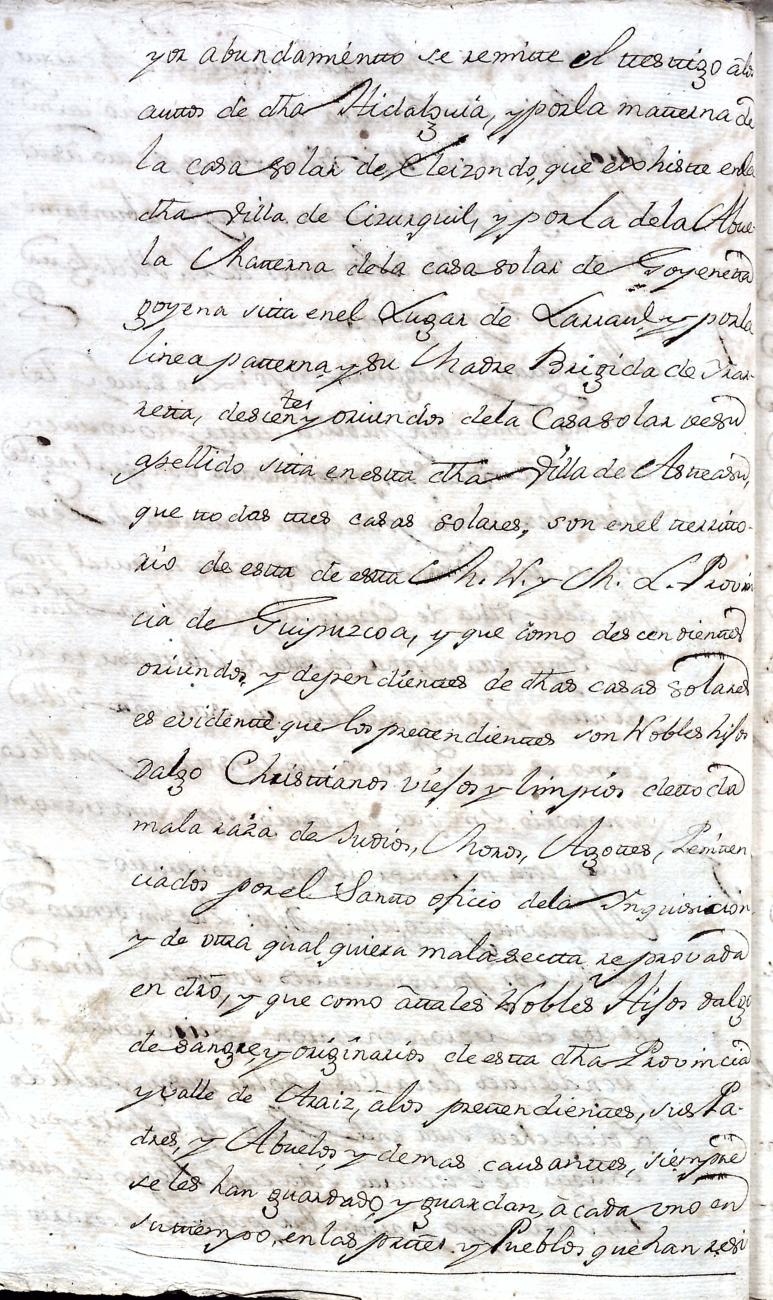 y or abundamientto se remitte el ttesttigo âlos
auttos de dha Hidalguia, y por la matterna de
la casa solar de Eleizondo, que exhistte en la
dha Villa de Cizurquil, y por la de la Abue-
la Matterna de la casa solar de Goyenetta
goyena sitta en el Lugar de Larraul, y por la
linea patterna y su Madre Brigida de Yrar-
retta, descentes y oriundos de la Casa solar de su
apellido sitta en estta dha Villa de Astteasu,
que ttodas ttres casas solares, son en el territto-
rio de estta de estta M. N. y M. L. Provin
cia de Guipuzcoa, y que como descendienttes
oriundos, y dependienttes de dhas casas solares
es evidentte que los prettendienttes son Nobles hijos
dalgo Christtianos viejos y limpios de ttoda
mala raza de Judios, Moros, Agottes, Peniten
ciados por el Santto oficio de la Ynquisicion
y de ottra qualquiera mala sectta reprovada
en dro, y que como â ttales Nobles Hijos dalgo
de sangre, y originarios de estta dha Provincia
y valle de Araiz, âlos prettendienttes, sus Pa-
dres, y Abuelos, y demas causanttes, siempre
se les han guardado, y guardan, â cada uno en
su ttiempo, en las parttes y Pueblos que han resi